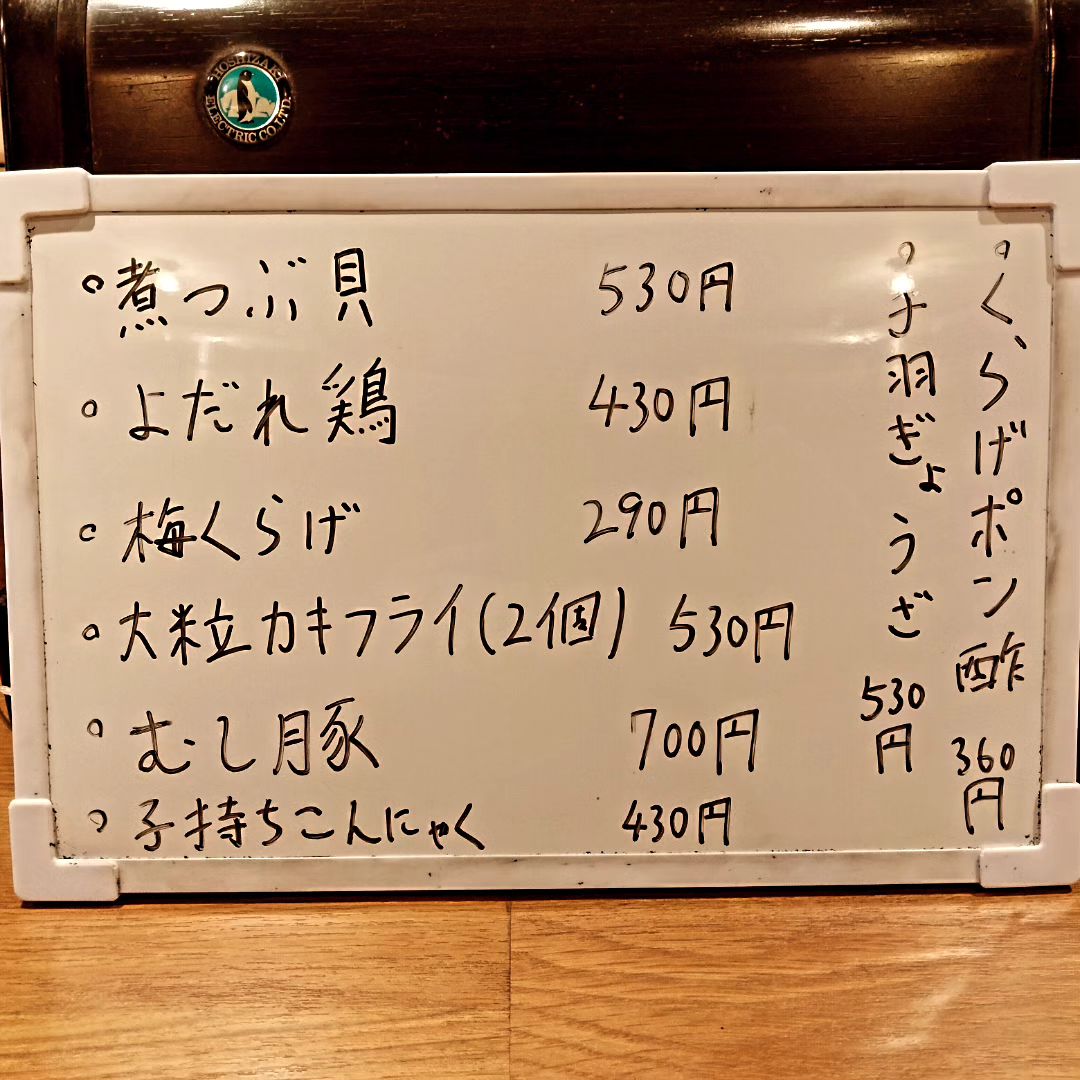 HOSHIZAKI ELECTRIC CO.LTD.
煮つぶ貝 530円
よだれ鶏 430円
梅くらげ 290円
大粒立カキフライ(2個) 530円
むし月豕 700円
子持ちこんにゃく 430円
くらげポン酢 360円
手羽ぎょうざ 530円